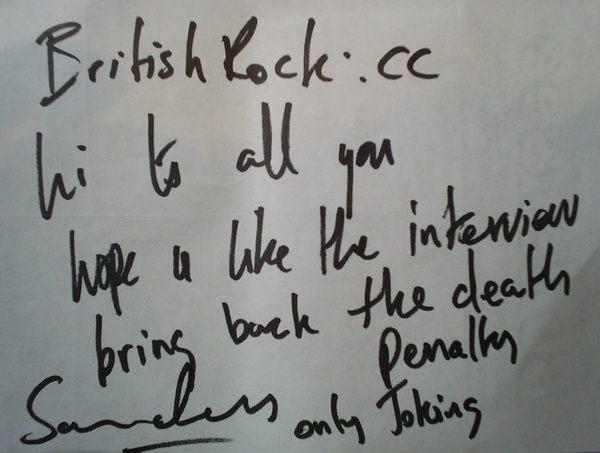 British Rock:.cc
hi to all you
hope u like the interview
bring back the death
Penalty
Sanders only Joking